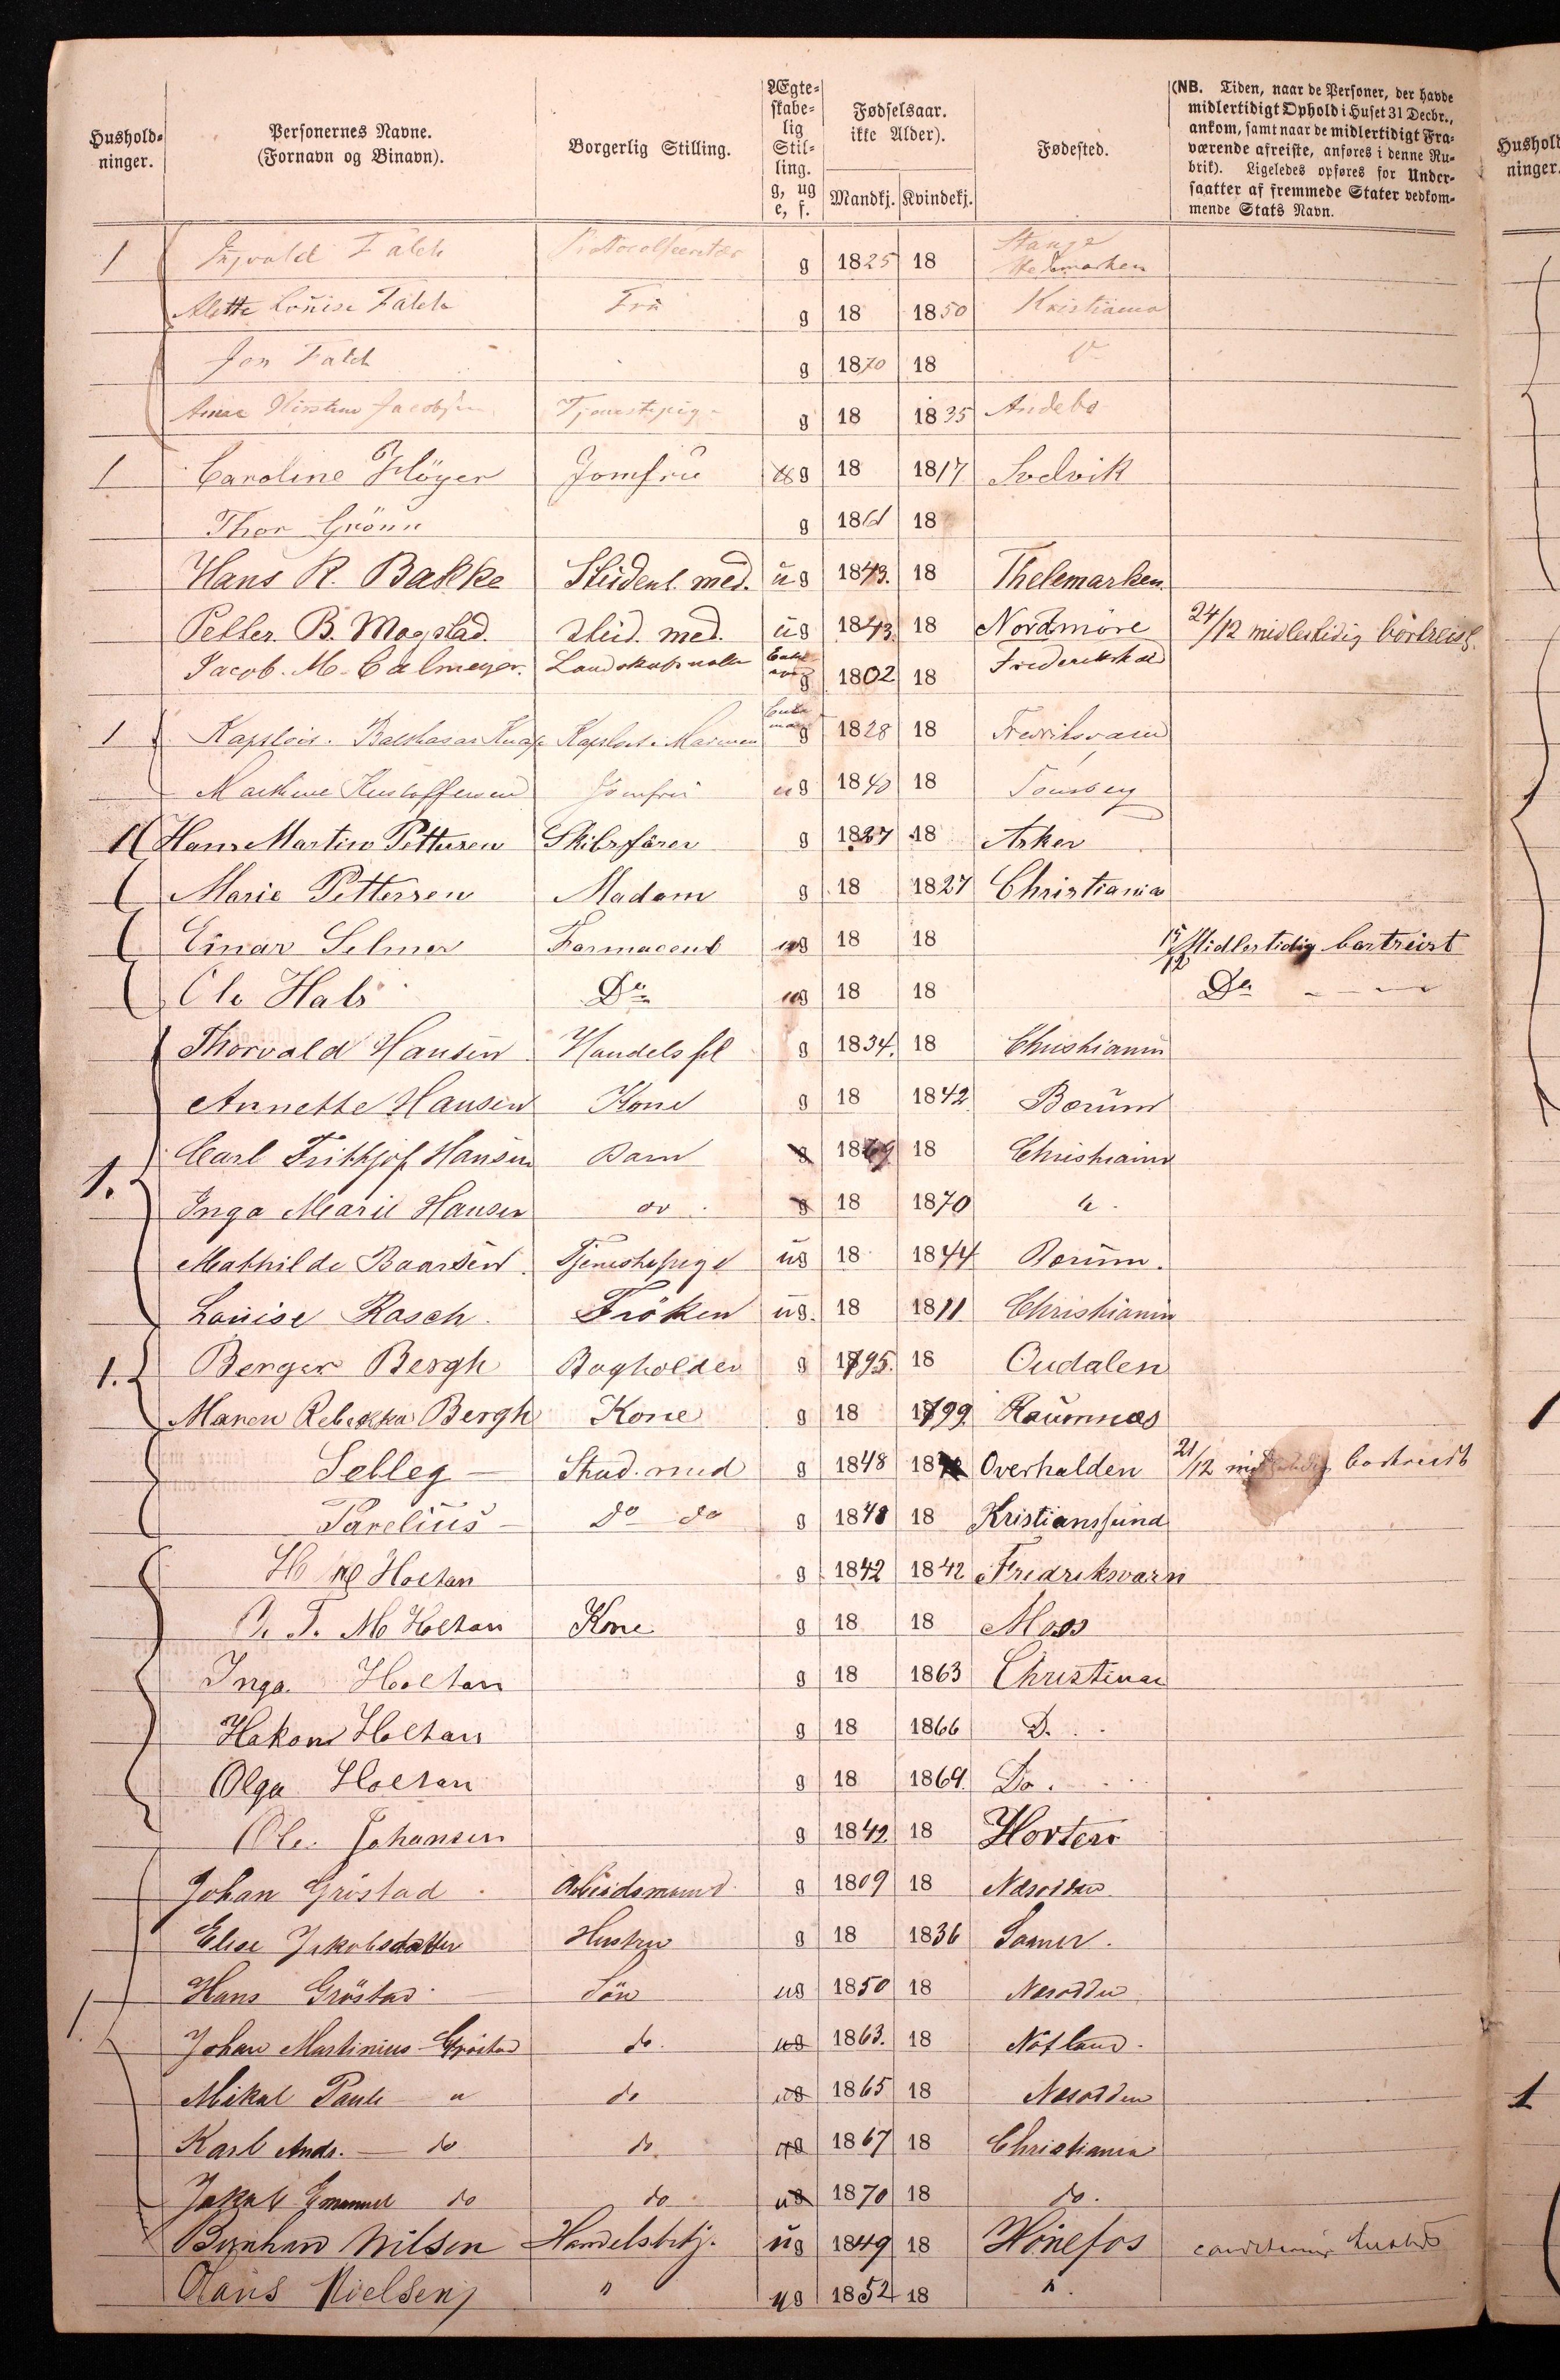 Hushold-
ninger.
Personernes Navne.
(Fornavn og Binavn).
Borgerlig Stilling.
Ægte-
skabe-
lig
Stil-
ling.
g, ug
e, f.
Fødselsaar.
ikke Alder).
Mandkj. Kvindekj.
Fødested.
(NB. Tiden, naar de Personer, der havde
midlertidigt Ophold i Huset 31 Decbr.,
ankom, samt naar de midlertidigt Fra-
værende afreiste, anføres i denne Ru-
brik). Ligeledes opføres for Under-
saatter af fremmede Stater vedkom-
mende Stats Navn.
Hushold
ninger.
1 Ingvald Falck g 1825 18 Stange Hedemarken
Alette Louise Falck Fru g 18 1850 Kristiania
Jon Falck g 1870 18
Anna Kirstine Jacobsen Tjenestepige g 18 1835 Andebo
1 Caroline Höyer Jomfru g 18 1817 Svelvik
Thor Grönn g 1861 18
Hans R. Bakke Student. med. ug 1843. 18 Thelemarken.
Petter B. Magstad. stud. med. ug 1843. 18 Nordmöre 24/12 midlertidig bortreist.
Jacob. M. Calmeyer. Landskabsmaler Enke g 1802 18 Frederikshald
1 Balthasar g 1828 18 Fredriksværn
Jomfru ug 1840 18 Tönsberg
1 Hans Martin Pettersen Skibsförer g 1827 18 Asker
Marie Pettersen Madam g 18 1827 Christiania
Einar Selmer Farmaceut ug 18 18 15/12 Midlertidig bortreist
Ole Hals Do ug 18 18 Do
Thorvald Hansen Handelsfl g 1834. 18 Christiania
Annette Hansen Kone g 18 1842 Bærum
1. Carl Frithjof Hansen Barn g 1869 18 Christiania
Inga Marie Hansen do g 18 1870 "
Mathilde Baarsen Tjenestepige ug 18 1844 Bærum.
Louise Rasch. Fröken ug. 18 1811 Christiania
1. Berger Bergh Bogholder g 1795. 18 Oudalen
Maren Rebekka Bergh Kone g 18 1799 Raumnæs
Selleg Stud. med g 1848 18 Overhalden 21/12 midlertidig bortreist
Parelius do do g 1848 18 Kristianssund
Holtan g 1842 1842 Fredriksværn
M Holtan Kone g 18 18 Moss
Inga Holtan g 18 1863 Christiania
Hakon Holtan g 18 1866 D.
Olga Holtan g 18 1869. Do.
Ole Johansen g 1842 18 Horten
Johan Gröstad Arbeidsmand g 1809 18 Næsodden
Elise Jakobsdatter Hustru g 18 1836
1 Hans Gröstad Sön ug 1850 18 Næsodden
Johan Martinius Gröstad do. ug 1863. 18
Mikal Pauli " do ug 1865 18 Næsodden
Karl Andr. do do ug 1867 18 Christiania
Jakob Emanuel do do ug 1870 18 do.
Bernhard Nilsen Handelsbetj. ug 1849 18 Hönefos
Olaus Nielsen " ug 1852 18 "
1
1